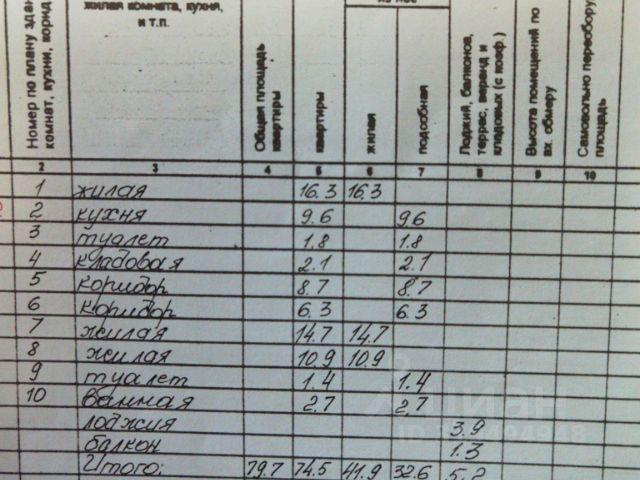 жилая комната, кухня,
и т.п.
Номер по плану
комнат, кухни,
Общая площадь
квартиры
квартиры
жилая
подсобная
Лоджий, балконов,
террас, веранд и
кладовых (с коэф.)
Высота помещений по
вн. обмеру
Самовольно
площадь
2 3 4 5 6 7 8 9 10
1 жилая 16.3 16.3
2 кухня 9.6 9.6
3 туалет 1.8 1.8
4 кладовая 2.1 2.1
5 коридор 8.7 8.7
6 коридор 6.3 6.3
7 жилая 14.7 14.7
8 жилая 10.9 10.9
9 туалет 1.4 1.4
10 ванная 2.7 2.7
лоджия 3.9
балкон 1.3
Итого: 79.7 74.5 41.9 32.6 5.2